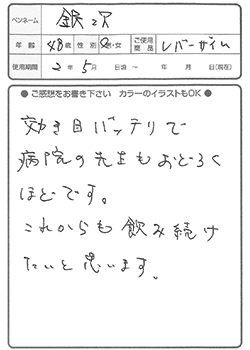 ペンネーム 銀次
年齢 48歳 性別 男・女 ご使用商品 レバーザイム
使用期間 2年5月 日頃 ～ 年 月 日(現在)
● ご感想をお書き下さい カラーのイラストもOK ●
効き目バッテリで
病院の先生もおどろく
ほどです。
これからも飲み続け
たいと思います。